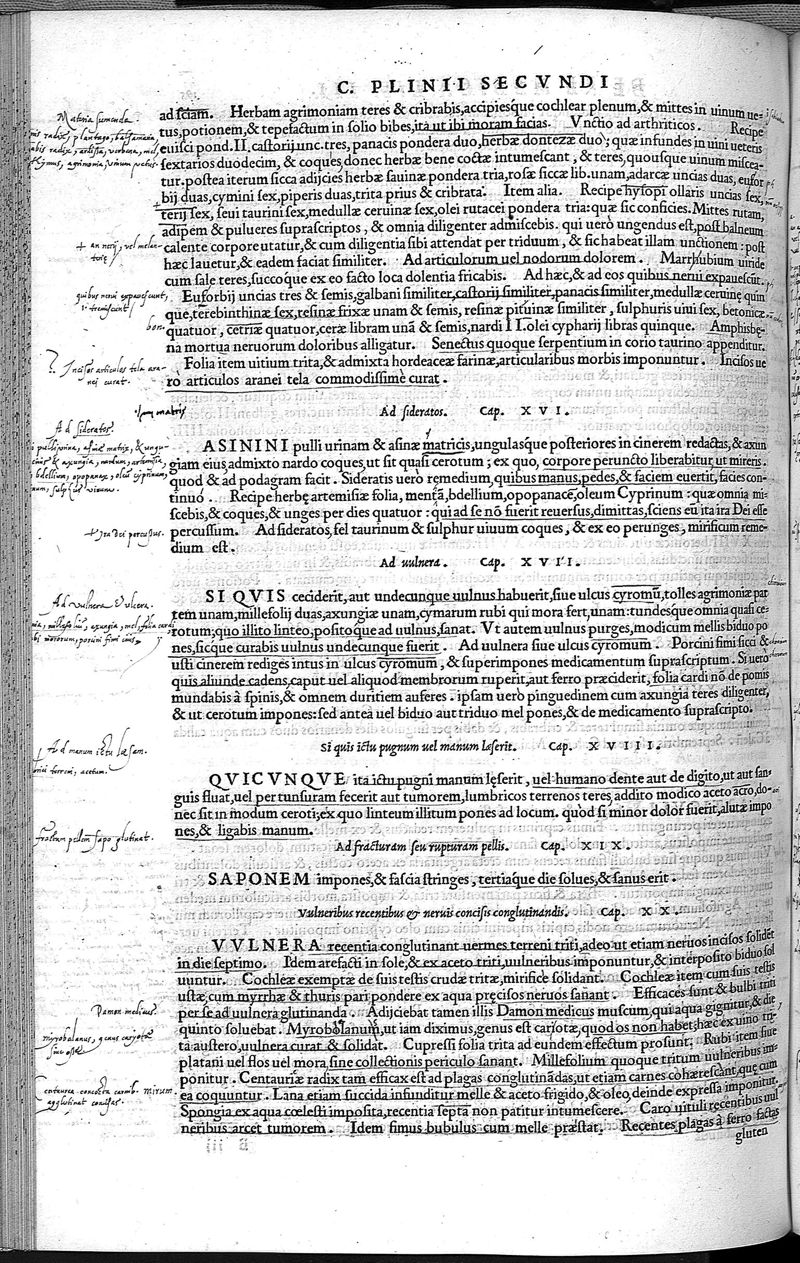 C. PLINII SECVNDI
ad sciam. Herbam agrimoniam teres & cribrabis, accipiesque cochlear plenum, & mittes in uinum ue=
tus, potionem, & tepefactum in solio bibes, ita ut ibi moram facias. Vnctio ad arthriticos. Recipe
euisci pond. II. castorij unc. tres, panacis pondera duo, herbæ dontezæ duo; quæ infundes in uini ueteris
sextarios duodecim, & coques, donec herbæ bene coctæ intumescant, & teres, quousque uinum miscea=
tur. postea iterum sicca adijcies herbæ sauinæ pondera tria, rosæ siccæ lib. unam, adarcæ uncias duas, eufor
bij duas, cymini sex, piperis duas, trita prius & cribrata. Item alia. Recipe hysopi ollaris uncias sex,
terij sex, seui taurini sex, medullæ ceruinæ sex, olei rutacei pondera tria: quæ sic conficies. Mittes rutam,
adipem & pulueres suprascriptos, & omnia diligenter admiscebis. qui uero ungendus est, post balneum
calente corpore utatur, & cum diligentia sibi attendat per triduum, & sic habeat illam unctionem: post
hæc lauetur, & eadem faciat similiter. Ad articulorum uel nodorum dolorem. Marrhubium uiride
cum sale teres, succoque ex eo facto loca dolentia fricabis. Ad hæc, & ad eos quibus nerui expauescūt.
Euforbij uncias tres & semis, galbani similiter, castorij similiter, panacis similiter, medullæ ceruinę quin
que, terebinthinæ sex, resinæ frixæ unam & semis, resinæ pituinæ similiter, sulphuris uiui sex, betonicæ
quatuor, cetriæ quatuor, ceræ libram unā & semis, nardi II. olei cypharij libras quinque. Amphisbę=
na mortua neruorum doloribus alligatur. Senectus quoque serpentium in corio taurino appenditur.
Folia item uitium trita, & admixta hordeaceæ farinæ, articularibus morbis imponuntur. Incisos ue
ro articulos aranei tela commodissimè curat.
Ad sideratos. Cap. XVI.
ASININI pulli urinam & asinæ matricis, ungulasque posteriores in cinerem redactas, & axun
giam eius, admixto nardo coques, ut sit quasi cerotum; ex quo, corpore peruncto liberabitur, ut mireris.
quod & ad podagram facit. Sideratis uerò remedium, quibus manus, pedes, & faciem euertit, facies con=
tinuo. Recipe herbę artemisiæ folia, mentā, bdellium, opopanacē, oleum Cyprinum: quæ omnia mi=
scebis, & coques, & unges per dies quatuor: qui ad se nō fuerit reuersus, dimittas, sciens eū ita ira Dei esse
percussum. Ad sideratos, fel taurinum & sulphur uiuum coques, & ex eo perunges, mirificum reme=
dium est.
Ad uulnera. Cap. XVII.
SI QVIS ceciderit, aut undecunque uulnus habuerit, siue ulcus cyromū, tolles agrimoniæ par
tem unam, millefolij duas, axungiæ unam, cymarum rubi qui mora fert, unam: tundesque omnia quasi ce=
rotum; quo illito linteo, positoque ad uulnus, sanat. Vt autem uulnus purges, modicum mellis biduo po
nes, sicque curabis uulnus undecunque fuerit. Ad uulnera siue ulcus cyromum. Porcini fimi sicci &
usti cinerem rediges intus in ulcus cyromum, & superimpones medicamentum suprascriptum. Si uerò
quis aliunde cadens, caput uel aliquod membrorum ruperit, aut ferro præciderit, folia cardi nō de pomis
mundabis à spinis, & omnem duritiem auferes. ipsam uerò pinguedinem cum axungia teres diligenter,
& ut cerotum impones: sed antea uel biduo aut triduo mel pones, & de medicamento suprascripto.
Si quis ictu pugnum uel manum læserit. Cap. XVIII.
QVICVNQVE ita ictu pugni manum lęserit, uel humano dente aut de digito, ut aut san=
guis fluat, uel per tunsuram fecerit aut tumorem, lumbricos terrenos teres, addito modico aceto acro, do=
nec sit in modum ceroti; ex quo linteum illitum pones ad locum. quòd si minor dolor fuerit, alutæ impo
nes, & ligabis manum.
Ad fracturam seu rupturam pellis. Cap. XIX.
SAPONEM impones, & fascia stringes, tertiaque die solues, & sanus erit.
Vulneribus recentibus & neruis concisis conglutinandis. Cap. XX.
VVLNERA recentia conglutinant uermes terreni triti, adeo ut etiam neruos incisos solidet
in die septimo. Idem arefacti in sole, & ex aceto triti, uulneribus imponuntur, & interposito biduo sol
uuntur. Cochleæ exemptæ de suis testis crudæ tritæ, mirifice solidant. Cochleæ item cum suis testis
ustæ, cum myrrhæ & thuris pari pondere ex aqua pręcisos neruos sanant. Efficaces sunt & bulbi triti
per se ad uulnera glutinanda. Adijciebat tamen illis Damon medicus muscum, qui aqua gignitur, & die
quinto soluebat. Myrobolanum, ut iam diximus, genus est cariotæ, quod os non habet; hæc ex uino tri=
ta austero, uulnera curat & solidat. Cupressi folia trita ad eundem effectum prosunt. Rubi item siue
platani uel flos uel mora, sine collectionis periculo sanant. Millefolium quoque tritum uulneribus im=
ponitur. Centauriæ radix tam efficax est ad plagas conglutinādas, ut etiam carnes cohærescant, que cum
ea coquuntur. Lana etiam succida infunditur melle & aceto frigido, & oleo, deinde expressa imponitur.
Spongia ex aqua cœlesti imposita, recentia septa non patitur intumescere. Caro uituli recentibus uul
neribus arcet tumorem. Idem fimus bubulus cum melle præstat. Recentes plagas à ferro factas
gluten
Materia sumenda.
+ an nerij, vel melan-
quibus nerui expauescunt,
Incisos articulos tela ara-
nei curat.
Ad sideratos.
+ Ira dei percussus.
Ad vulnera Vlcera.
Ad manum ictu læsam.
fractam pellem sapo glutinat.
Damon medicus.
myrobalanus, genus cariotæ
sine osse
centaurea concocta carnib. mirum
agglutinat concisas.